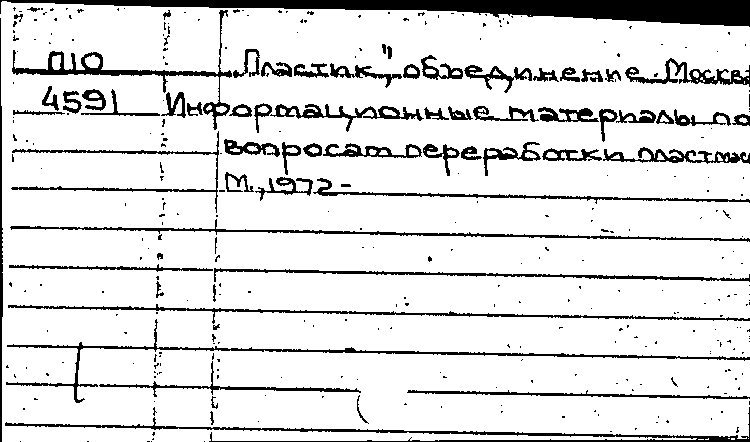 П10 „Пластик", объединение. Москва
4591 Информационные материалы по
вопросам переработки пластмас
М., 1972-